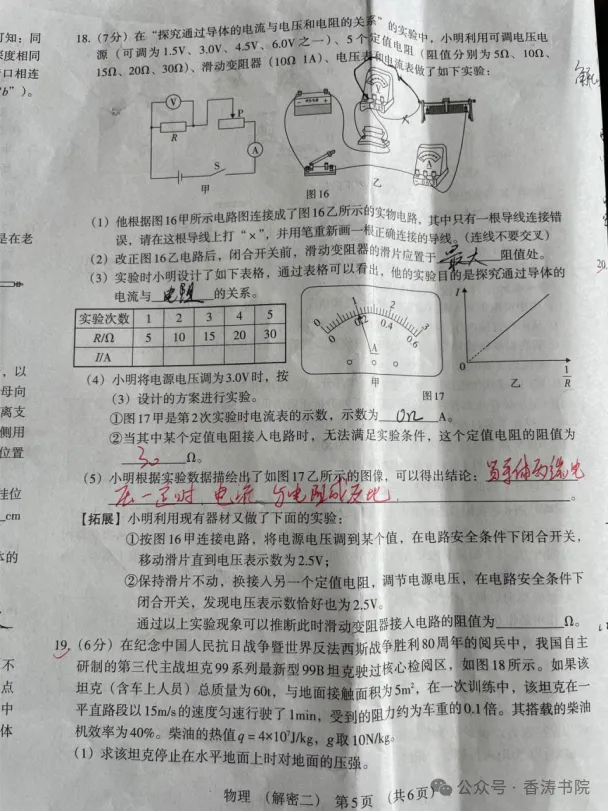 18.(7分)在“探究通过导体的电流与电压和电阻的关系”的实验中,小明利用可调电压电
源(可调为1.5V、3.0V、4.5V、6.0V之一)、5个定值电阻(阻值分别为5Ω、10Ω、
15Ω、20Ω、30Ω)、滑动变阻器(10Ω 1A)、电压表和电流表做了如下实验:
V
R
P
A
S
甲
乙
图16
(1)他根据图16甲所示电路图连接成了图16乙所示的实物电路,其中只有一根导线连接错
误,请在这根导线上打“×”,并用笔重新画一根正确连接的导线。(连线不要交叉)
(2)改正图16乙电路后,闭合开关前,滑动变阻器的滑片应置于 最大 阻值处。
(3)实验时小明设计了如下表格,通过表格可以看出,他的实验目的是探究通过导体的
电流与 电阻 的关系。
实验次数 1 2 3 4 5
R/Ω 5 10 15 20 30
I/A
0 1 2 3
0 0.2 0.4 0.6
A
甲
I
0
1/R
乙
图17
(4)小明将电源电压调为3.0V时,按
(3)设计的方案进行实验。
①图17甲是第2次实验时电流表的示数,示数为 A。
②当其中某个定值电阻接入电路时,无法满足实验条件,这个定值电阻的阻值为
30 Ω。
(5)小明根据实验数据描绘出了如图17乙所示的图像,可以得出结论: 当导体两端电
压一定时 电流与电阻成反比 。
【拓展】小明利用现有器材又做了下面的实验:
①按图16甲连接电路,将电源电压调到某个值,在电路安全条件下闭合开关,
移动滑片直到电压表示数为2.5V;
②保持滑片不动,换接入另一个定值电阻,调节电源电压,在电路安全条件下
闭合开关,发现电压表示数恰好也为2.5V。
通过以上实验现象可以推断此时滑动变阻器接入电路的阻值为 Ω。
19.(6分)在纪念中国人民抗日战争暨世界反法西斯战争胜利80周年的阅兵中,我国自主
研制的第三代主战坦克99系列最新型99B坦克驶过核心检阅区,如图18所示。如果该
坦克(含车上人员)总质量为60t,与地面接触面积为5m²,在一次训练中,该坦克在一
平直路段以15m/s的速度匀速行驶了1min,受到的阻力约为车重的0.1倍。其搭载的柴油
机效率为40%。柴油的热值q=4×10⁷J/kg,g取10N/kg。
(1)求该坦克停止在水平地面上时对地面的压强。
物理 (解密二) 第5页 (共6页)
公众号·香涛书院
可知:同
深度相同
口相连
“b”)。
是在老
,以
母向
离支
侧用
位置
cm
不
点
中
体
20.